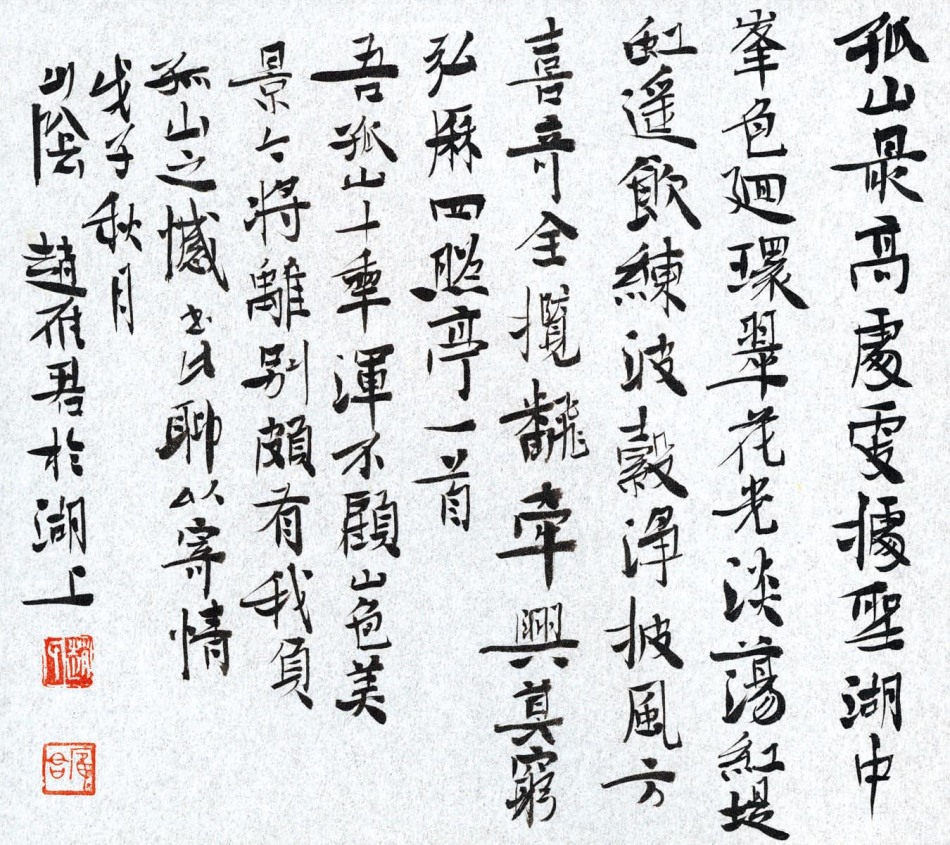 孤山最高處據聖湖中
峯色廻環翠花光淡蕩紅堤
虹遥飲練波縠淨披風方
喜奇全攬飜牽興莫窮
弘厤四照亭一首
吾孤山十渾不顧山色美
景今將離別頗有我負
孤山之憾書此聊以寄情
戊子秋月
山陰 趙雁君於湖上